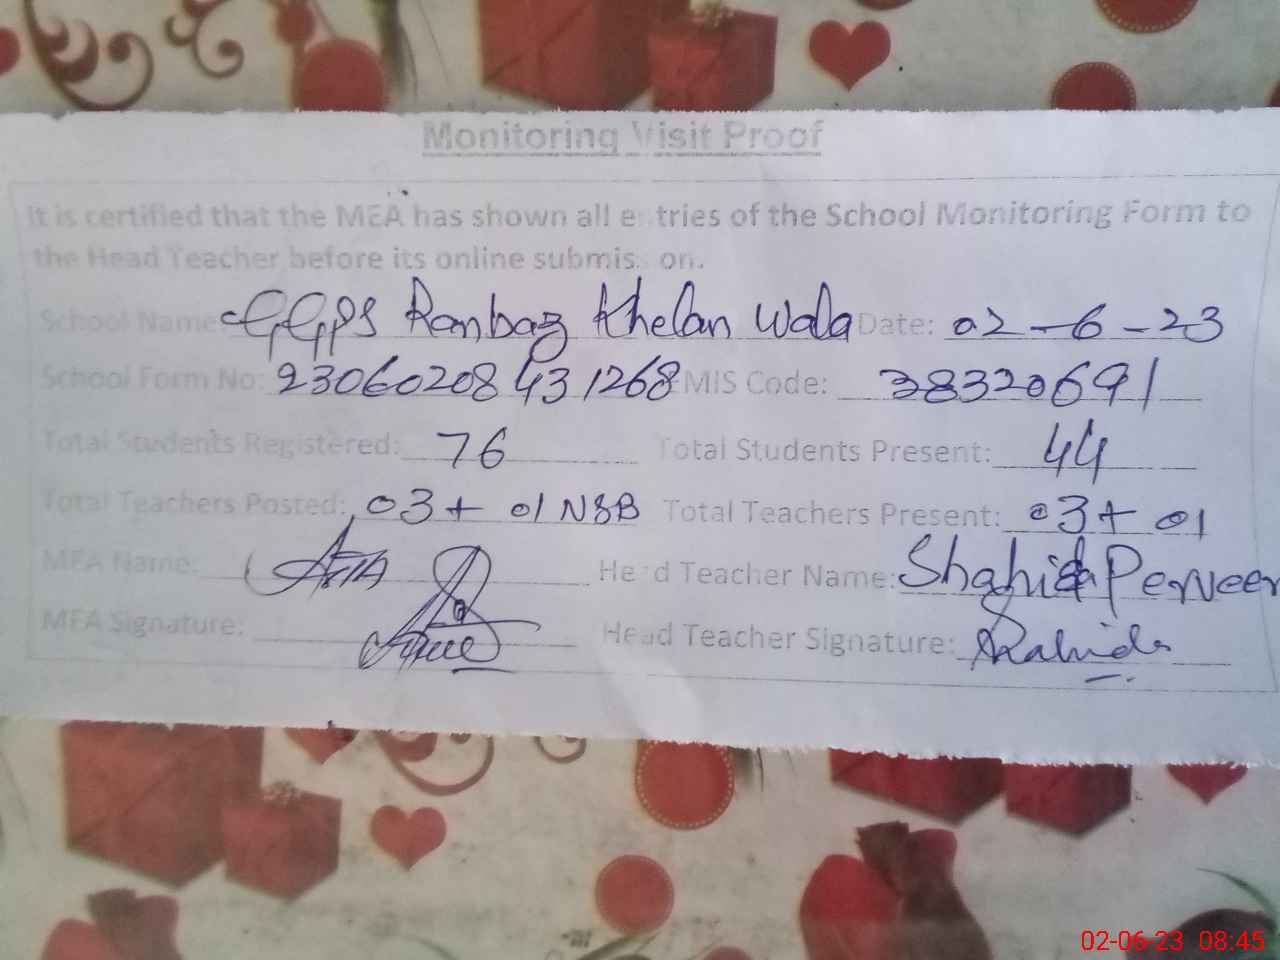 Monitoring Visit Proof
It is certified that the MEA has shown all entries of the School Monitoring Form to
the Head Teacher before its online submission.
School Name: GGPS Ranbaz Khelan Wala Date: 02-6-23
School Form No: 23060208431268 MIS Code: 38320691
Total Students Registered: 76 Total Students Present: 44
Total Teachers Posted: 03+ 01 NSB Total Teachers Present: 03+ 01
MEA Name: Head Teacher Name: Shahida Perveen
MEA Signature: Head Teacher Signature:
02-06-23 08:45